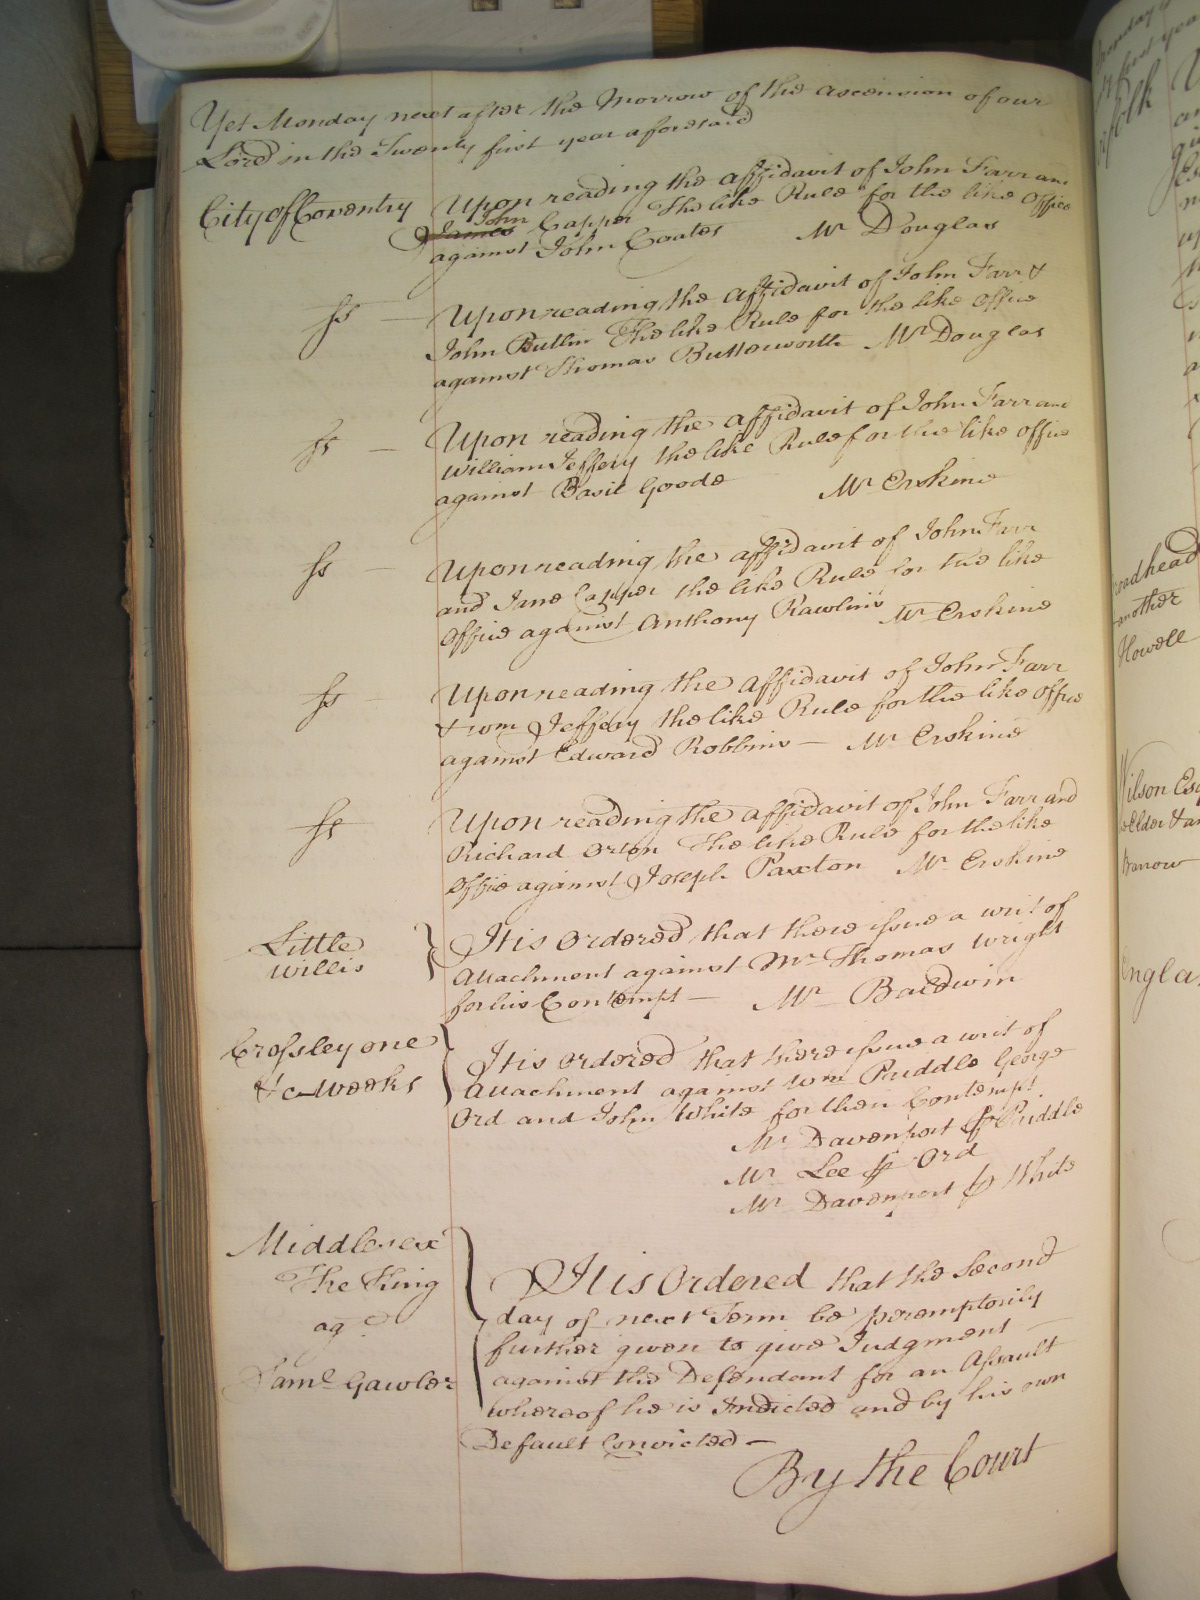 Yet Monday next after the Morrow of the Ascension of our
Lord in the Twenty first year aforesaid
City of Coventry
Upon reading the affidavit of John Farr and
James John Capper The like Rule for the like Office
against John Coates Mr Douglas
ss — Upon reading the affidavit of John Farr &
John Butlin The like Rule for the like Office
against Thomas Butterworth Mr Douglas
ss — Upon reading the affidavit of John Farr and
William Jeffery the like Rule for the like office
against Basil Goode Mr Erskine
ss — Upon reading the affidavit of John Farr
and Jane Capper the like Rule for the like
Office against Anthony Rawlins Mr Erskine
ss — Upon reading the affidavit of John Farr
& Wm Jeffery the like Rule for the like Office
against Edward Robbins — Mr Erskine
ss — Upon reading the affidavit of John Farr and
Richard Orton The like Rule for the like
Office against Joseph Paxton Mr Erskine
Little
Willis
It is Ordered that there issue a writ of
Attachment against Mr Thomas Wright
for his Contempt — Mr Baldwin
Crossley one
&c Weeks
It is ordered that there issue a writ of
Attachment against Wm Priddle George
Ord and John White for their Contempt
Mr Davenport for Priddle
Mr Lee for Ord
Mr Davenport for White
Middlesex
The King
agt
Saml Gawler
It is Ordered that the Second
day of next Term be peremptorily
further given to give Judgment —
against the Defendant for an Assault
whereof he is Indicted and by his own
Default Convicted —
By the Court
Howell
another
Wilson Esq
Barrow